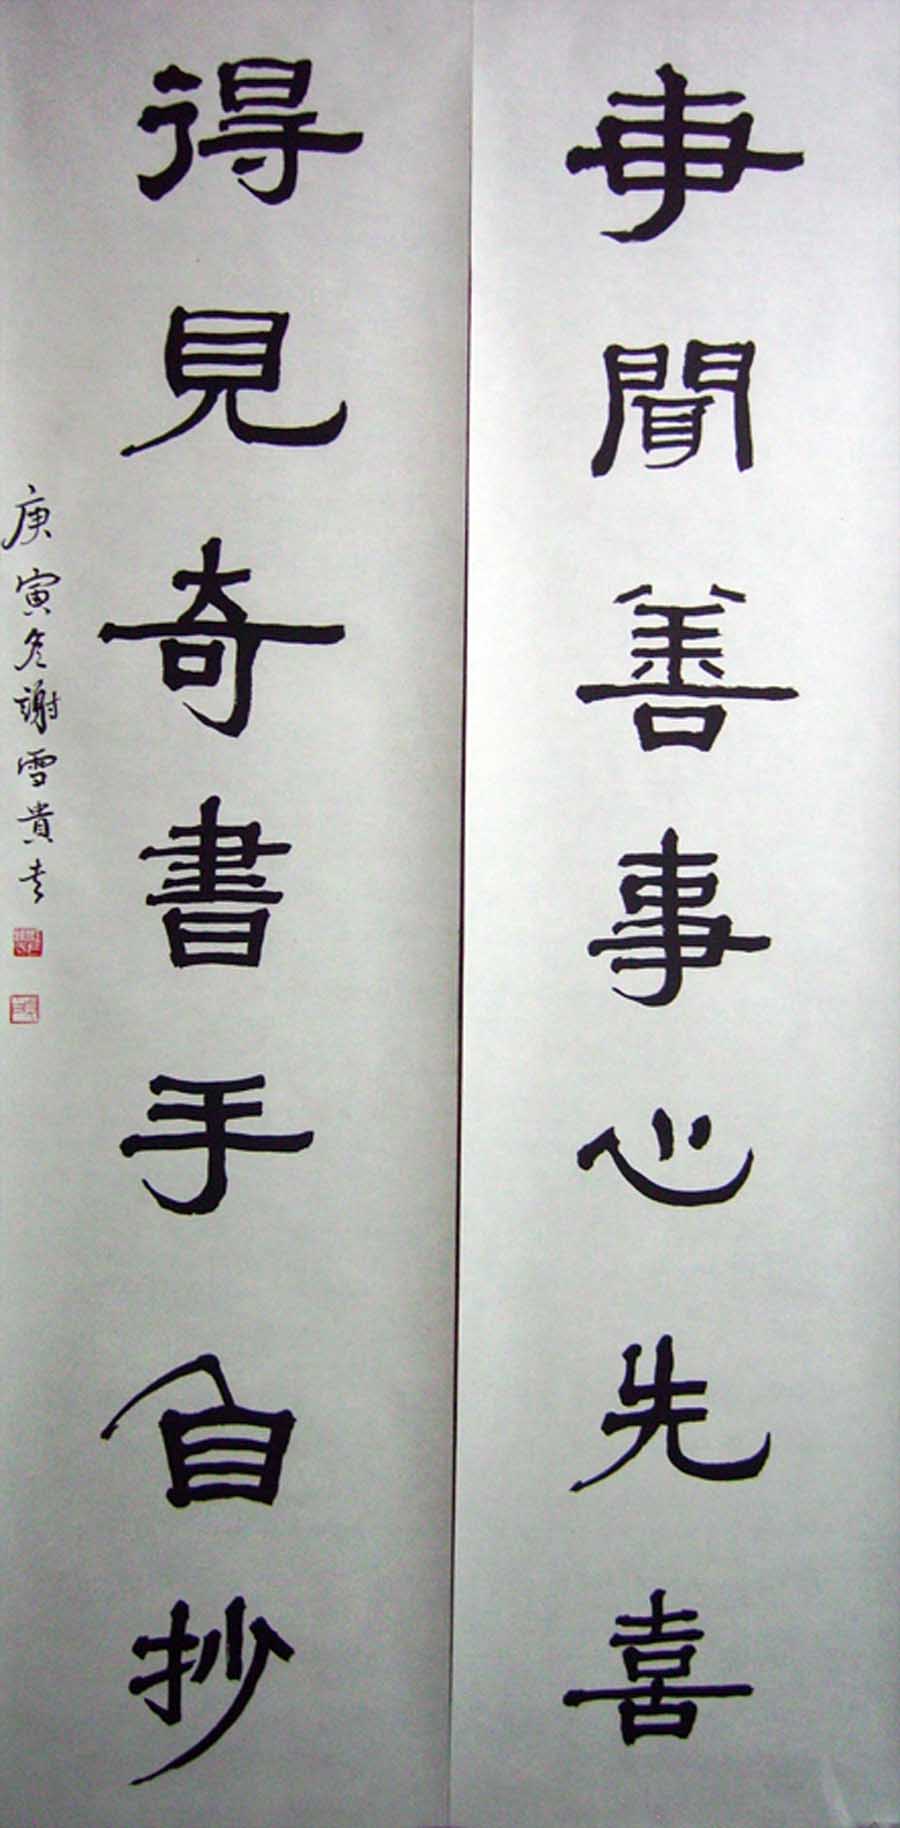 每聞善事心先喜
得見奇書手自抄
庚寅冬謝雪貴书